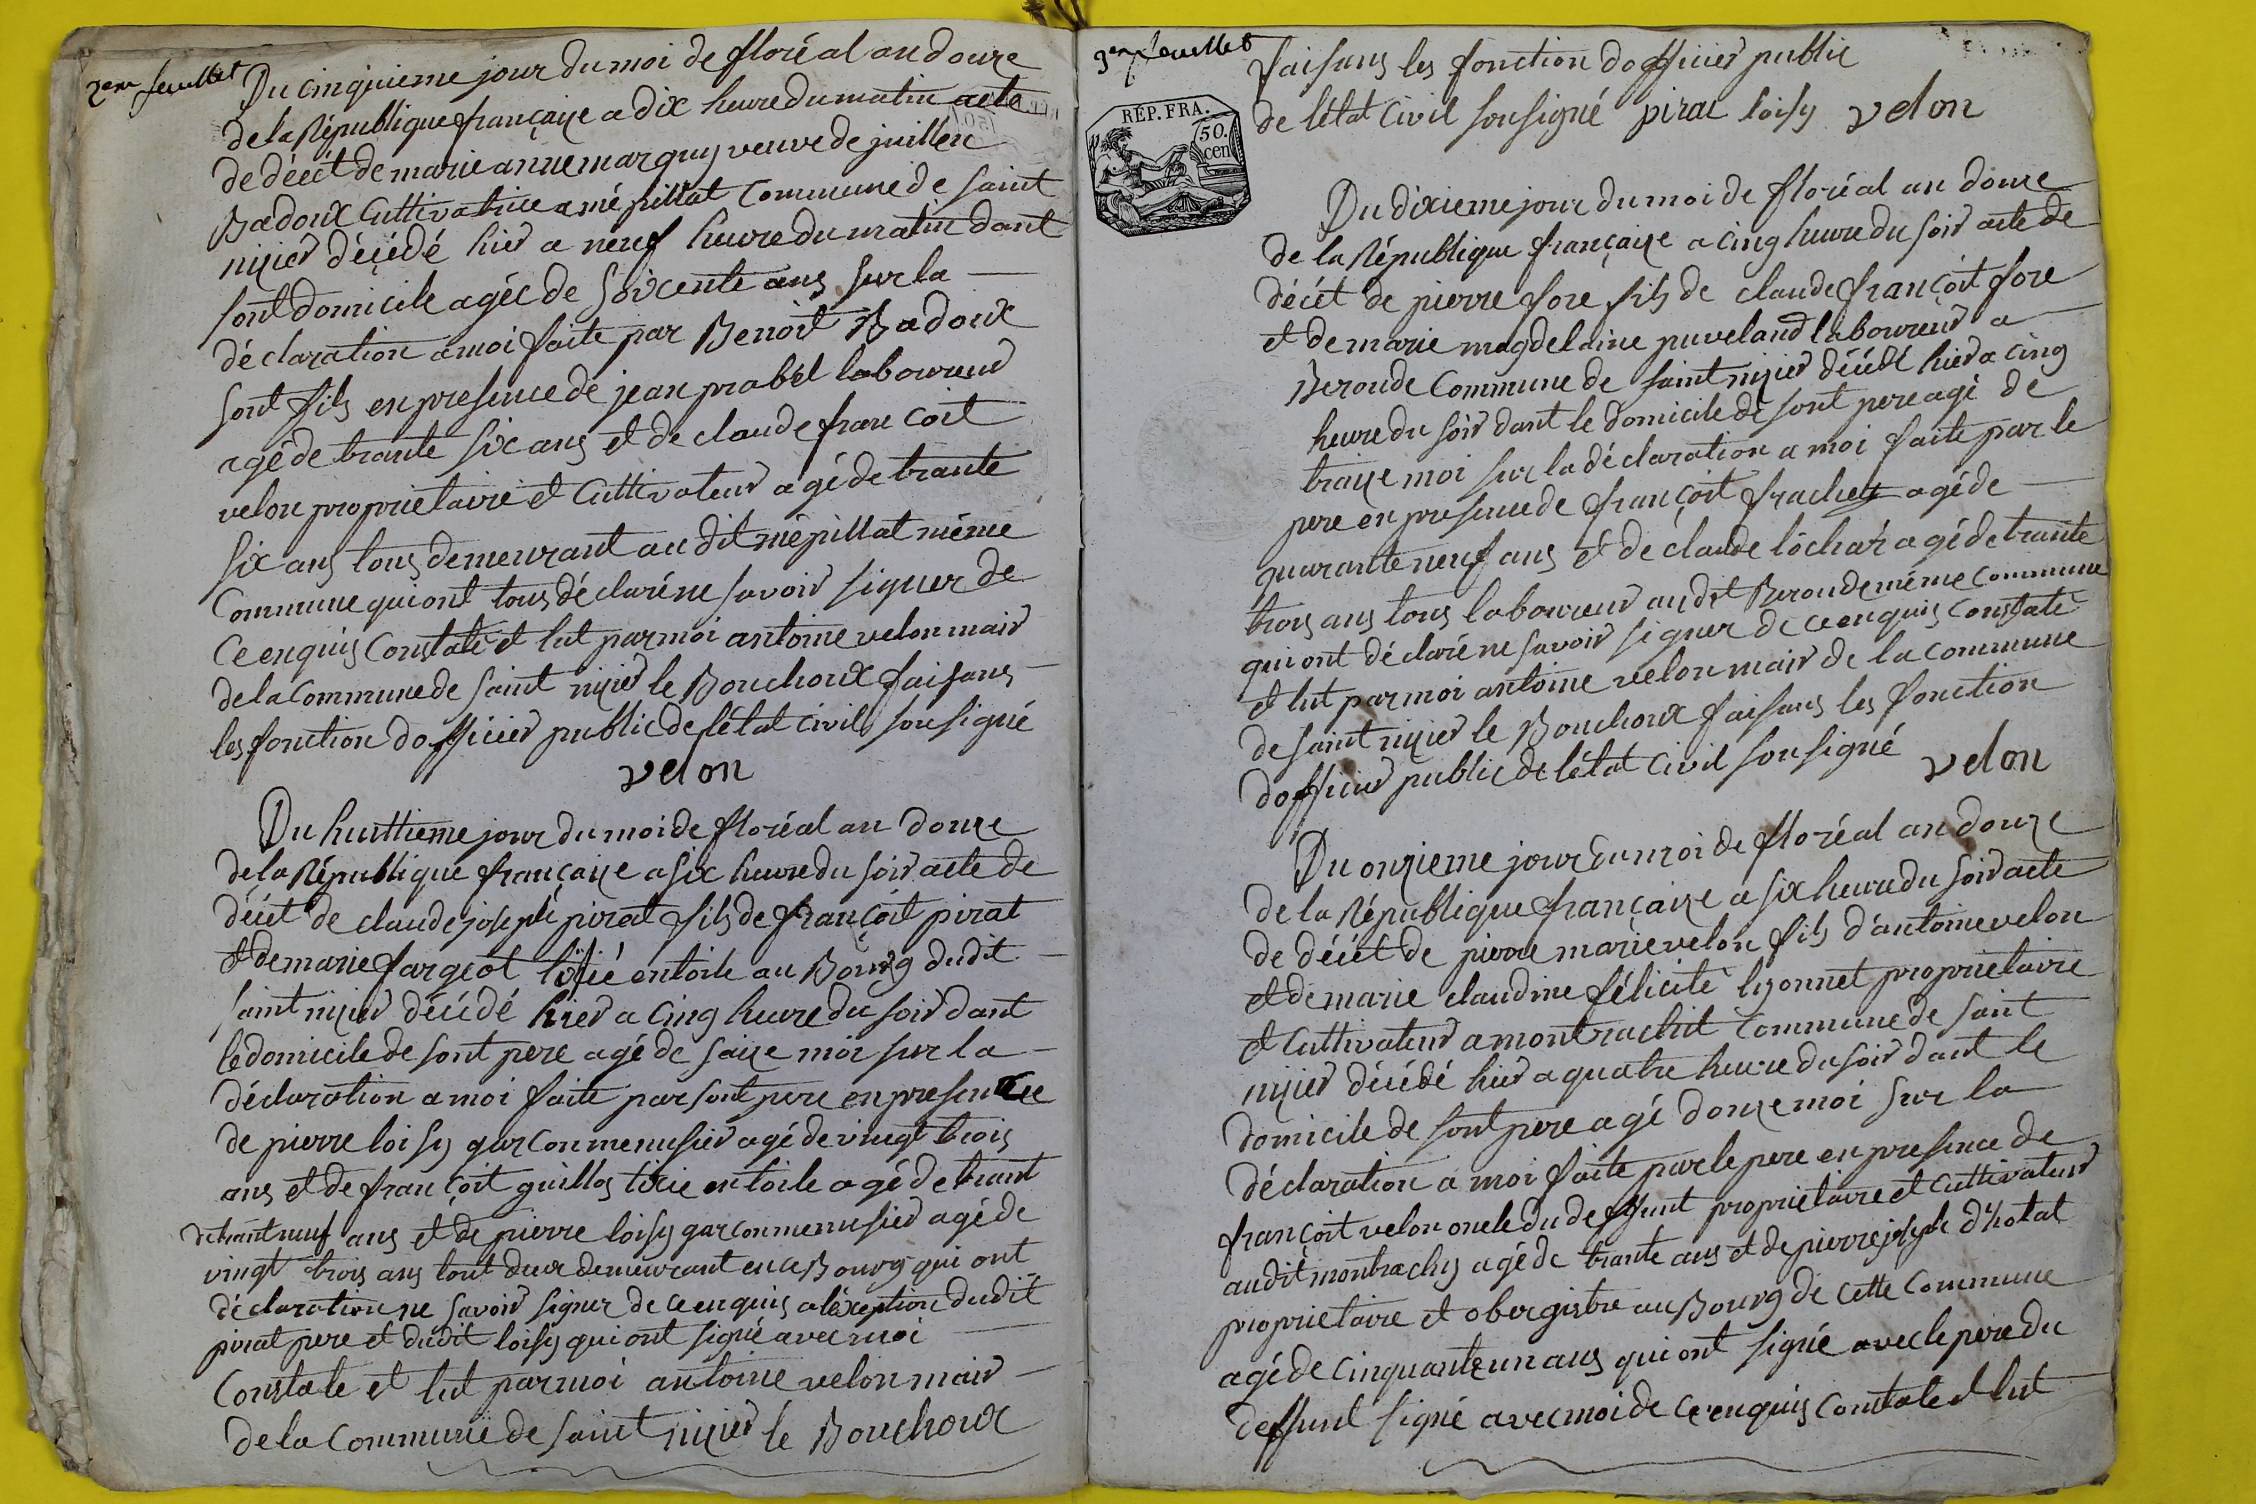 2eme feuillet
Du cinquieme jour du moi de floréal an douze
de la République françaize a dix heure du matin acte
de décét de marie anne marquis veuve de juillien
Badoux Cultivatrice a mépillat Commune de saint
nizier décédé hier a neuf heure du matin dant
sont domicile agée de soixente ans sur la
déclaration a moi faite par Benoit Badoux
sont fils en presence de jean prabel laboureur
agé de trante six ans et de claude françoit
velon proprietaire et Cultivateur agé de trante
six ans tous demeurant au dit mépillat même
Commune qui ont tous déclaré ne savoir signer de
ce enquis Constaté et lut par moi antoine velon mair
de la Commune de saint nizier le Bouchoux faisans
les fonction dofficier public de létat civil sousigné
velon
Du huittieme jour du moi de floréal an douze
de la République françaize a six heure du soir acte de
décét de claude joseph pirat fils de françoit pirat
et de marie fargeot tisié en toile au Bourg dudit
saint nizier décédé hier a cinq heure du soir dant
le domicile de sont pere agé de saize moi sur la
déclaration a moi faite par sont pere en presence
de pierre loisy garcon menusier agé de vingt trois
ans et de françoit guillos tixie en toile agé de trant
de trant neuf ans et de pierre loisy garcon menusier agé de
vingt trois ans tout deux demeurant en ce Bourg qui ont
déclaration ne savoir signer de ce enquis a léxeption dudit
pirat pere et dudit loisy qui ont signé avec moi
Constate et lut par moi antoine velon mair
de la Commune de saint nizier le Bouchoux
3eme feuillet
REP. FRA.
50.
cen
faisans les fonction dofficier public
de létat Civil sousigné pirat loisy velon
Du dixieme jour du moi de floréal an douze
de la République françaize a cinq heure du soir acte de
décét de pierre fore fils de claude françoit fore
et de marie magdelaine puveland laboureur a
Beronde Commune de saint nizier décédé hier a cinq
heure du soir dant le domicile de sont pere agé de
traize moi sur la déclaration a moi faite par le
pere en presence de françoit frachet agé de
quarante neuf ans et de claude lochar agé de trante
trois ans tous laboureur au dit Beronde même Commune
qui ont déclaré ne savoir signer de ce enquis Constaté
et lut par moi antoine velon mair de la Commune
de saint nizier le Bouchoux faisans les fonction
dofficier public de létat Civil sousigné velon
Du onzieme jour du moi de floréal an douze
de la République françaize a six heure du soir acte
de décét de pierre marie velon fils d'antoine velon
et de marie claudine félicité lyonnet proprietaire
et Cultivateur a montrachit Commune de saint
nizier décédé hier a quatre heure du soir dant le
domicile de sont pere agé donze moi sur la
déclaration a moi faite par le pere en presence de
françoit velon oncle du deffunt proprietaire et Cultivateur
au dit montrachy agé de trante ans et de pierre joseph d'hotal
proprietaire et obergistre au Bourg de cette Commune
agé de cinquante un ans qui ont signé avec le pere du
deffunt signé avec moi de ce enquis Constate et lut